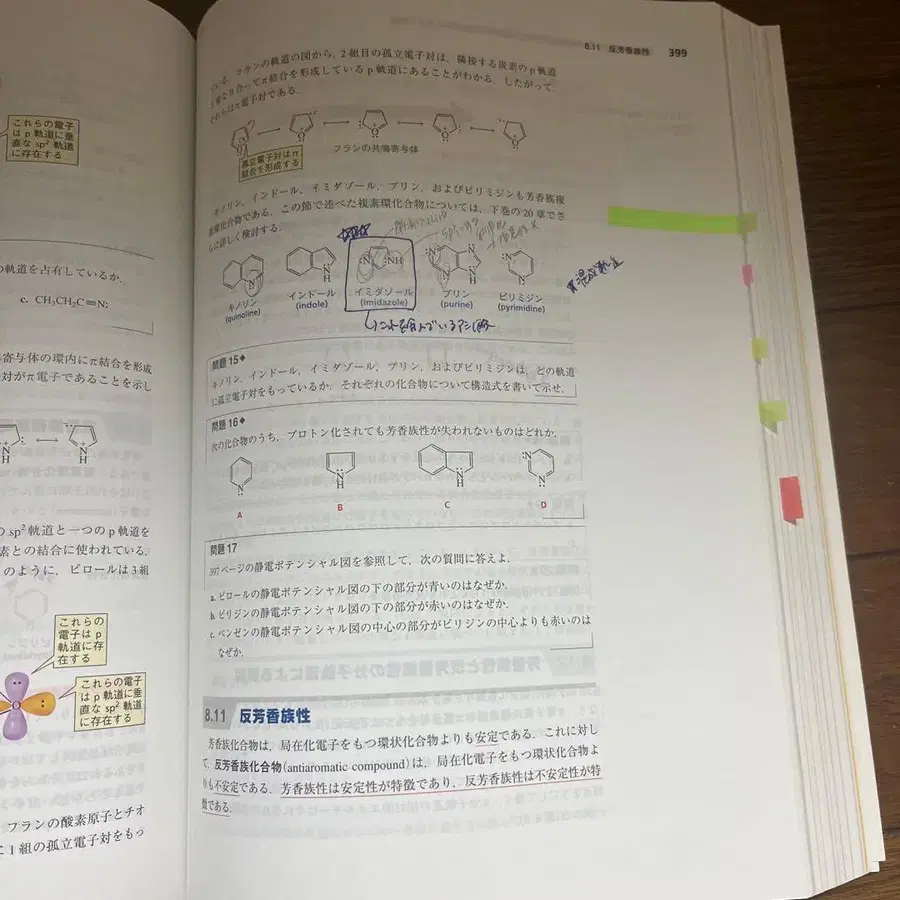 これらの電子
は p 軌道に垂
直な sp² 軌道
に存在する
の軌道を占有しているか.
c. CH₃CH₂C≡N:
寄与体の環内に π 結合を形成
対が π 電子であることを示し
N
H
N
H
の sp² 軌道と一つの p 軌道を
素との結合に使われている.
のように, ピロールは 3 組
これらの
電子は p
軌道に存
在する
これらの電子
は p 軌道に垂
直な sp² 軌道
に存在する
フランの酸素原子とチオ
に 1 組の孤立電子対をもっ
8.11 反芳香族性 399
フランの軌道の図から, 2 組目の孤立電子対は, 隣接する炭素の p 軌道
と重なり合って π 結合を形成している p 軌道にあることがわかる. したがって,
それらは π 電子対である.
孤立電子対は π
結合を形成する
フランの共鳴寄与体
キノリン, インドール, イミダゾール, プリン, およびピリミジンも芳香族複
素環化合物である. この節で述べた複素環化合物については, 下巻の 20 章でさ
らに詳しく検討する.
キノリン
(quinoline)
インドール
(indole)
イミダゾール
(imidazole)
プリン
(purine)
ピリミジン
(pyrimidine)
問題 15◆
キノリン, インドール, イミダゾール, プリン, およびピリミジンは, どの軌道
に孤立電子対をもっているか. それぞれの化合物について構造式を書いて示せ.
問題 16◆
次の化合物のうち, プロトン化されても芳香族性が失われないものはどれか.
A B C D
問題 17
397 ページの静電ポテンシャル図を参照して, 次の質問に答えよ.
a. ピロールの静電ポテンシャル図の下の部分が青いのはなぜか.
b. ピリジンの静電ポテンシャル図の下の部分が赤いのはなぜか.
c. ベンゼンの静電ポテンシャル図の中心の部分がピリジンの中心よりも赤いのは
なぜか.
8.11 反芳香族性
芳香族化合物は, 局在化電子をもつ環状化合物よりも安定である. これに対し
て, 反芳香族化合物 (antiaromatic compound) は, 局在化電子をもつ環状化合物よ
りも不安定である. 芳香族性は安定性が特徴であり, 反芳香族性は不安定性が特
徴である.